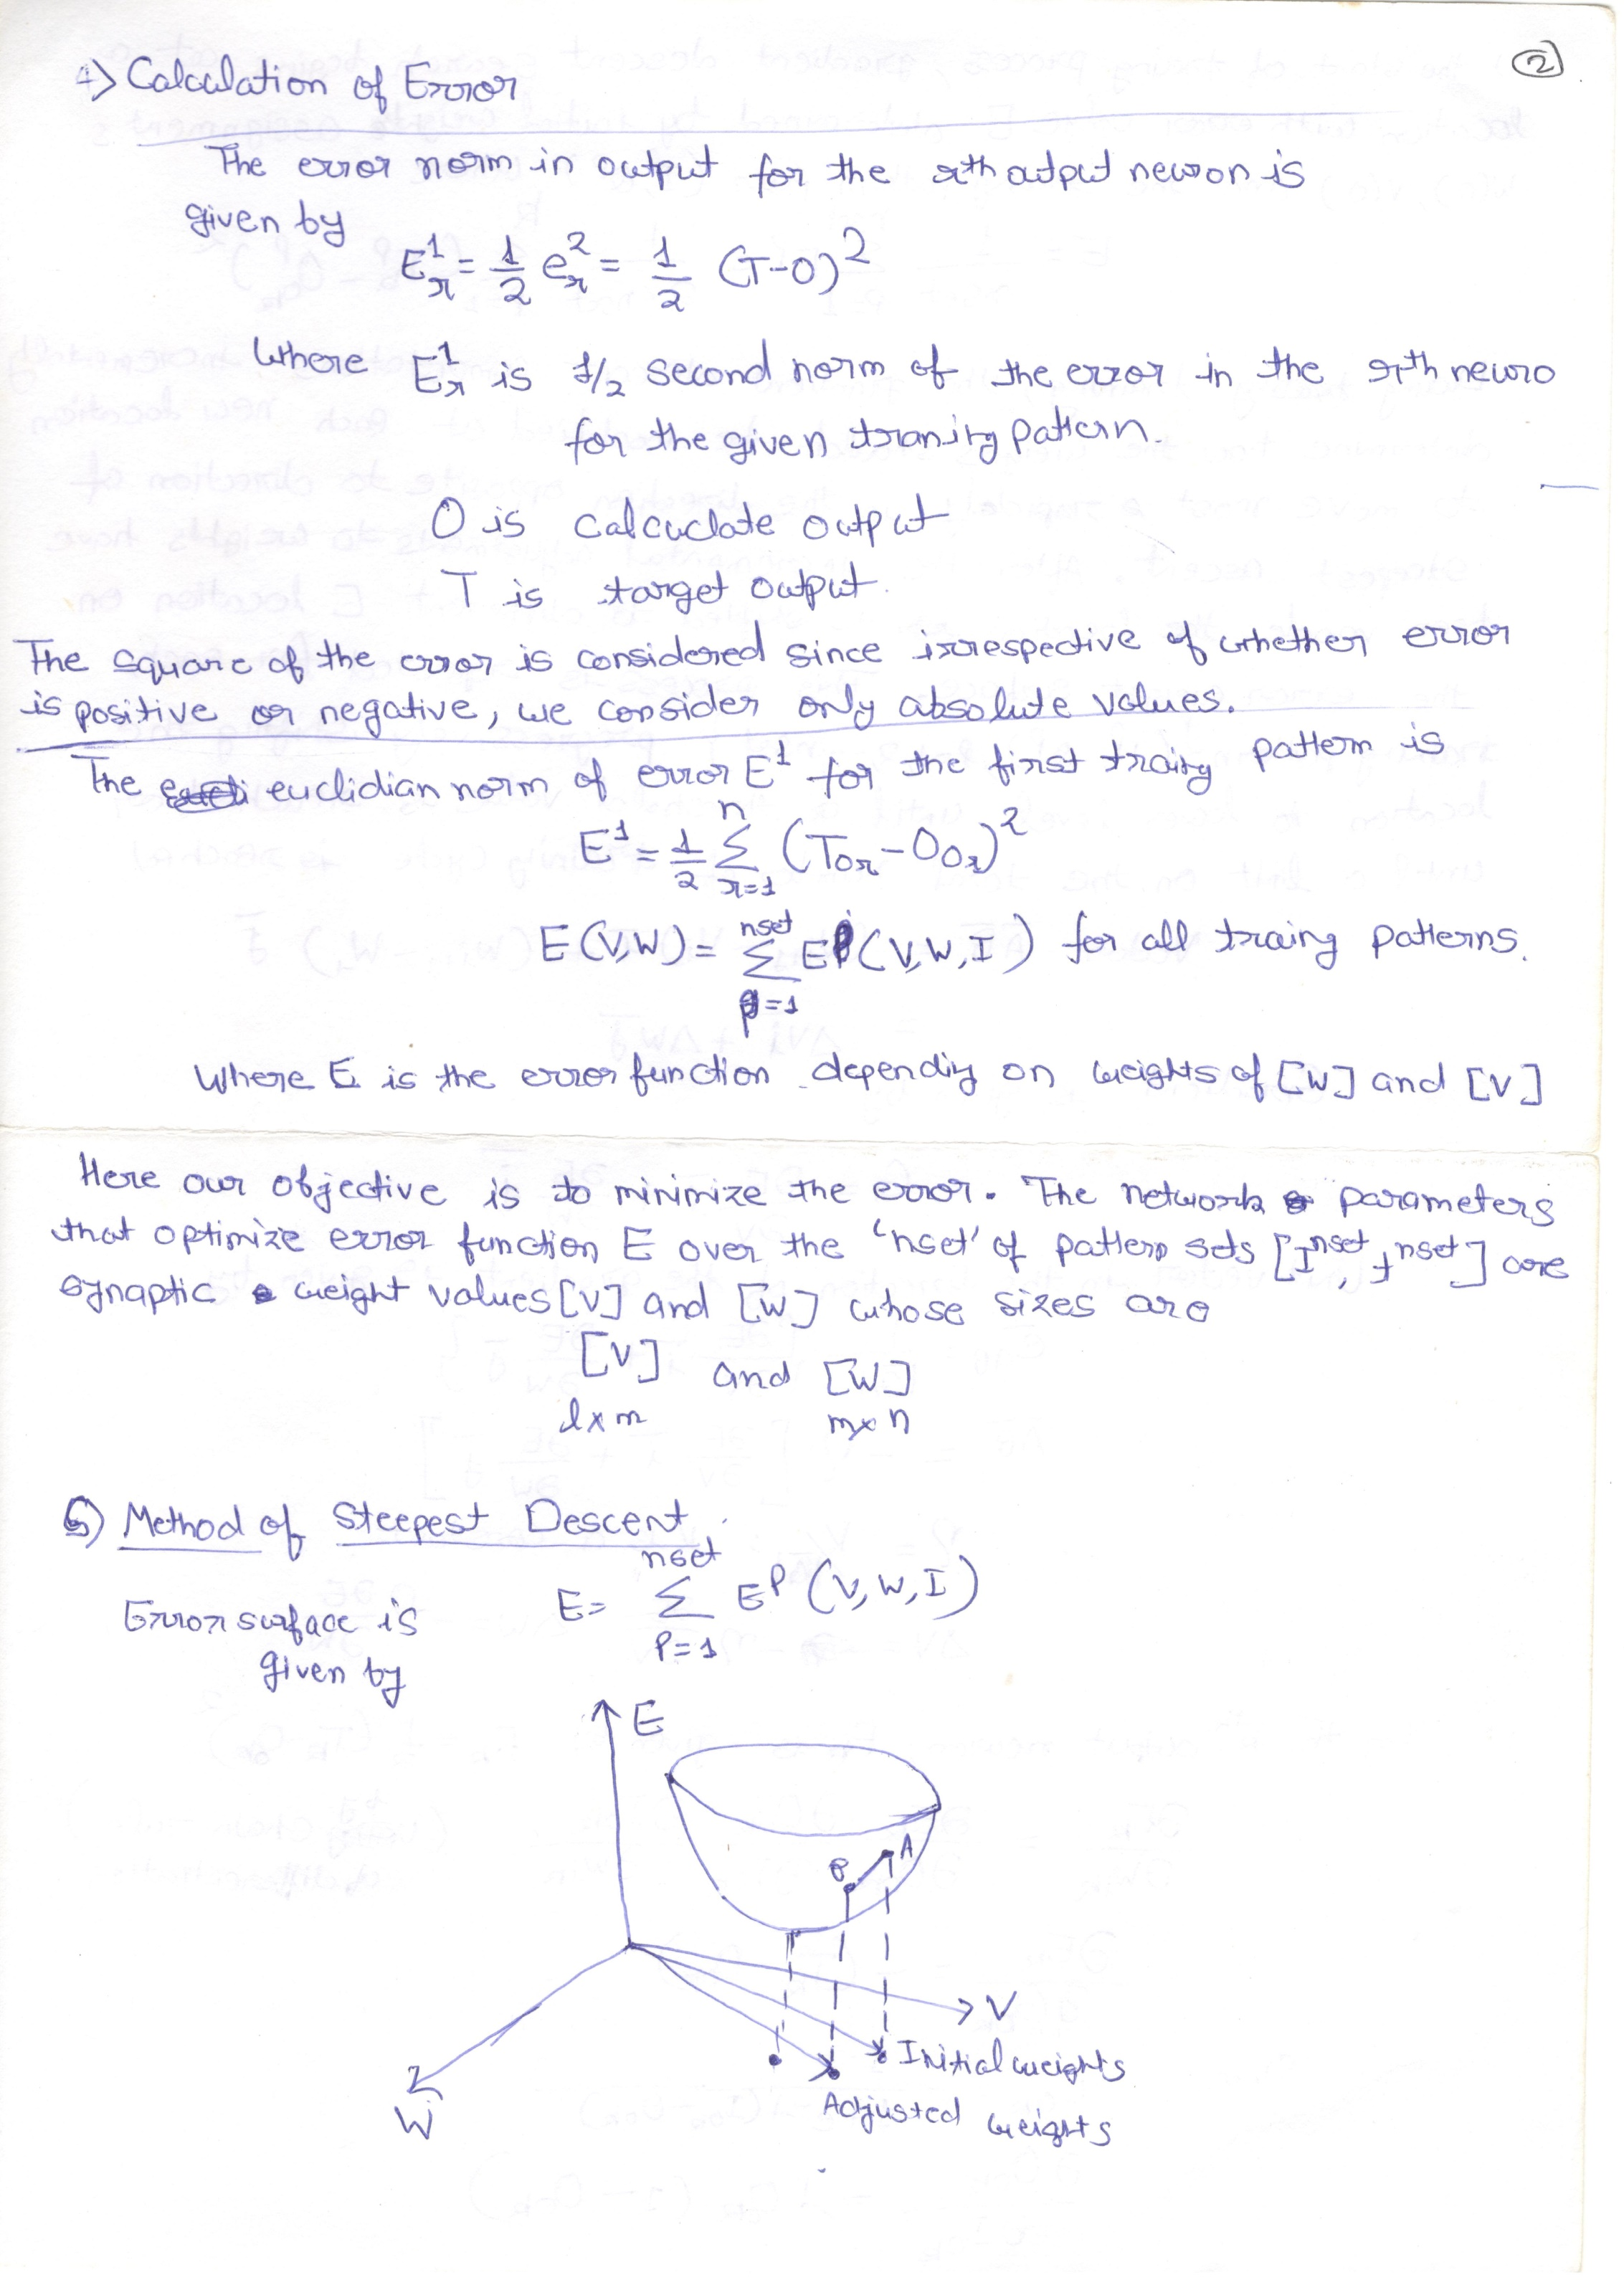 ②
4) Calculation of Error
The error norm in output for the rth output neuron is
given by
E¹ᵣ = 1/2 e²ᵣ = 1/2 (T-O)²
Where E¹ᵣ is 1/2 second norm of the error in the rth neuro
for the given traning pattern.
O is calcuclate output
T is target output.
The square of the error is considered since irrespective of whether error
is positive or negative, we consider only absolute values.
The euclidian norm of error E¹ for the first traing pattern is
E¹ = 1/2 Σ_{r=1}^{n} (T_{Or} - O_{Or})²
E(V,W) = Σ_{p=1}^{nset} E^p (V,W,I) for all traing patterns.
Where E is the error function depending on weights of [W] and [V]
Here our objective is to minimize the error. The network parameters
that optimize error function E over the 'nset' of pattern sets [I^{nset}, t^{nset}] are
synaptic weight values [V] and [W] whose sizes are
[V] and [W]
l×m m×n
5) Method of Steepest Descent.
Error surface is
given by
E = Σ_{P=1}^{nset} E^P (V,W,I)
E
A
B
V
Initial weights
Adjusted weights
W